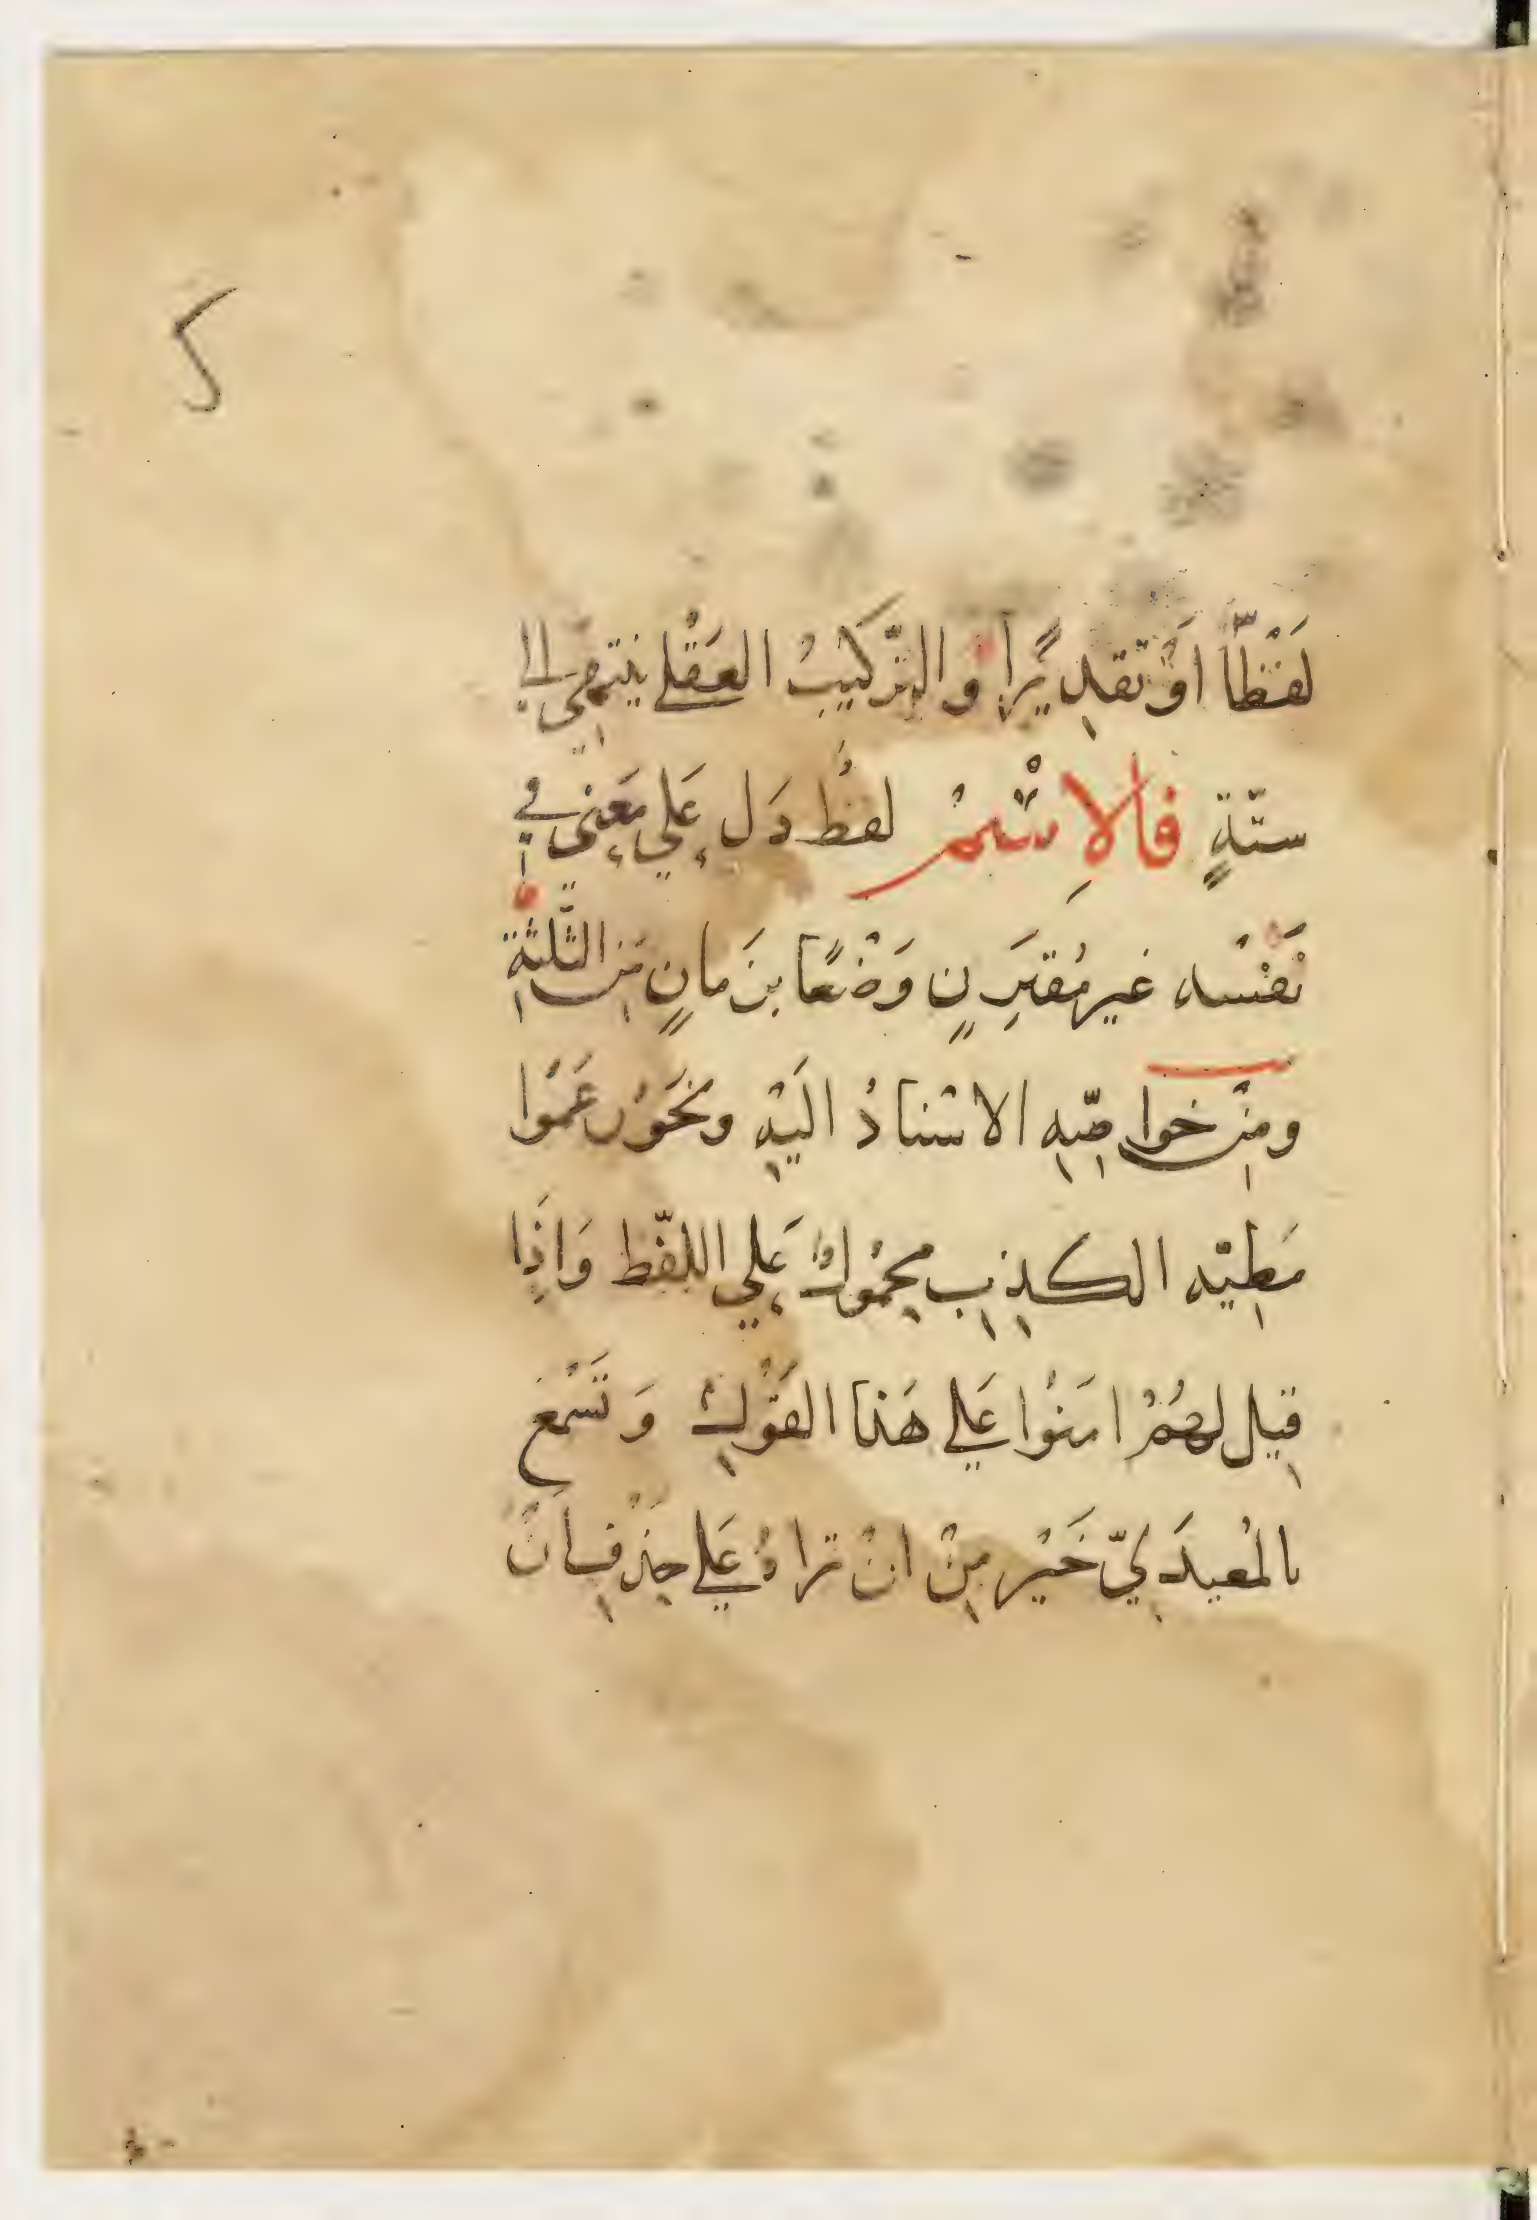 لَفْظًا اَوْ تقدِيرًا والتّركيبُ العَقْلي ينتهِي الي
ستّةٍ فالاِسْمُ لفظُ دَل عَلي مَعِني في
نَفْسه غير مُقترَنٍ وَضْعًا بزَمانٍ مِن الثّلثةِ
ومِنْ خواصِّهِ الاسْنادُ اليَهِ ونَحَوْ زعَمُوا
مَطِيّه الكذِبِ مَحِمُولٌ عَلي اللفّظ وَاذِا
قِيل لهمُ امَنُوا عَلي هَذا القَوْلِ وَتَسْمع
بالمُعيدِيّ خَيْر مِنْ انْ تراهُ عَلي حِذفِ انْ